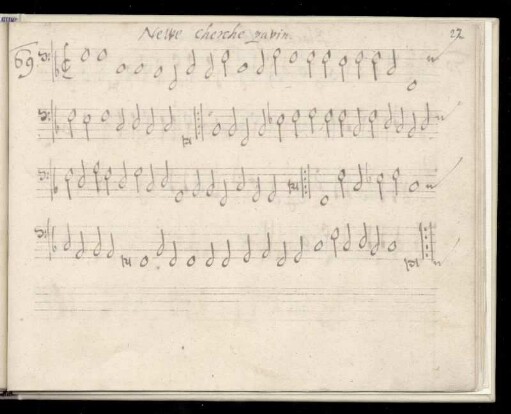 Newe cherche pavin. 27
69